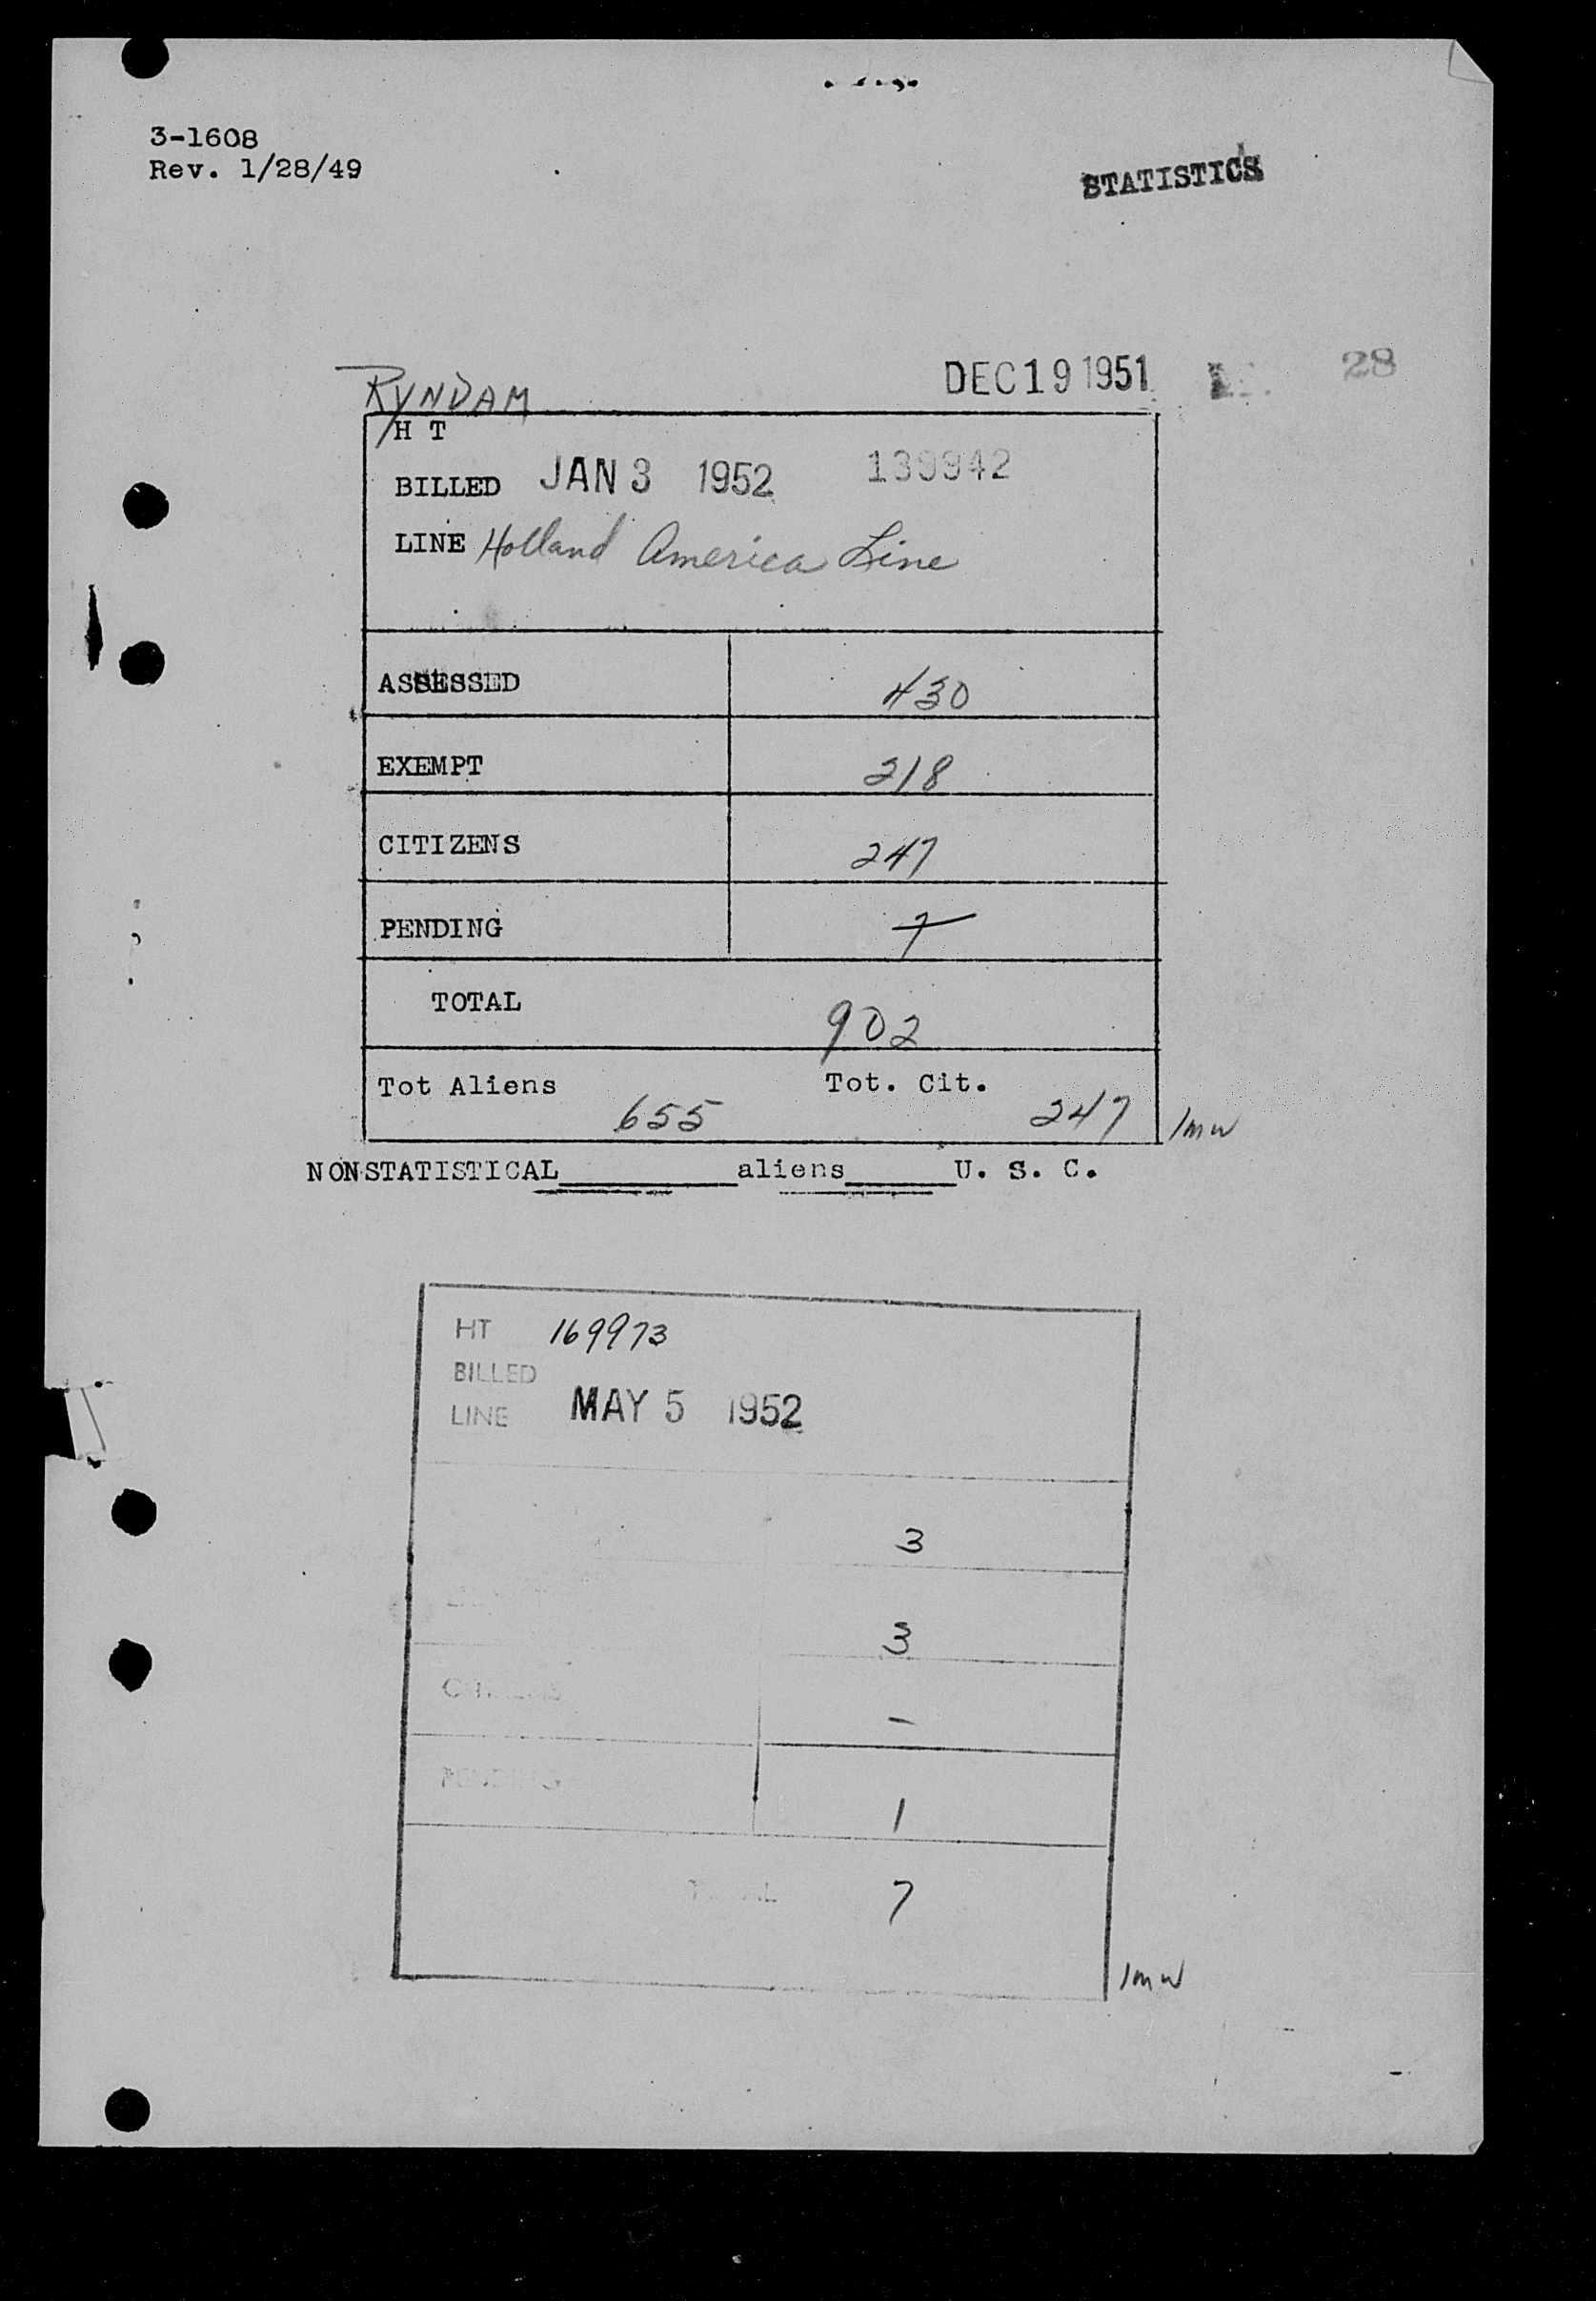 3-1608
Rev. 1/28/49
STATISTICS
RYNDAM
DEC 19 1951
28
H T
BILLED JAN 3 1952
LINE Holland America Line
ASSESSED 430
EXEMPT 218
CITIZENS 247
PENDING 7
TOTAL 902
Tot Aliens 655 Tot. Cit. 247 lmw
NONSTATISTICAL aliens U. S. C.
HT 169973
BILLED
LINE MAY 5 1952
3
3
-
PENDING 1
TOTAL 7
lmw